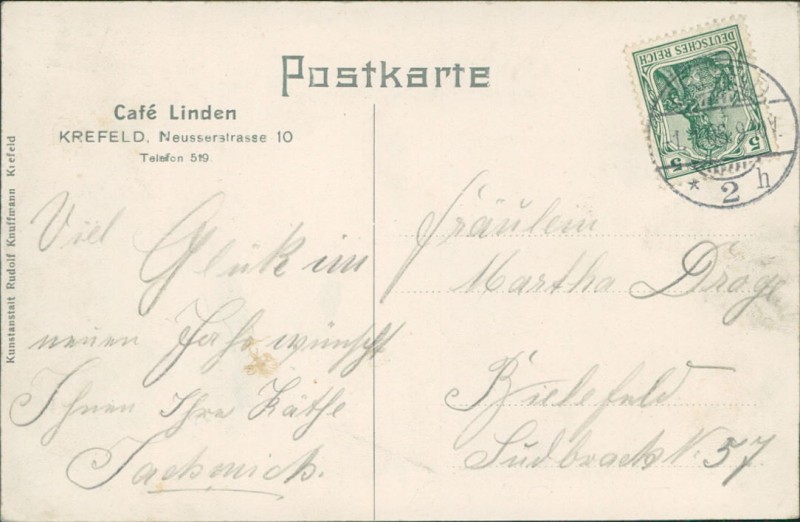 Postkarte
Café Linden
KREFELD, Neusserstrasse 10
Telefon 519.
Kunstanstalt Rudolf Knuffmann Krefeld
Viel
Glük im
neuen Jahr wünscht
Ihnen Ihre Käthe
DEUTSCHES REICH
5 5
* 2 h
Fräulein
Martha Droge
Bielefeld
Sudbrack N. 57